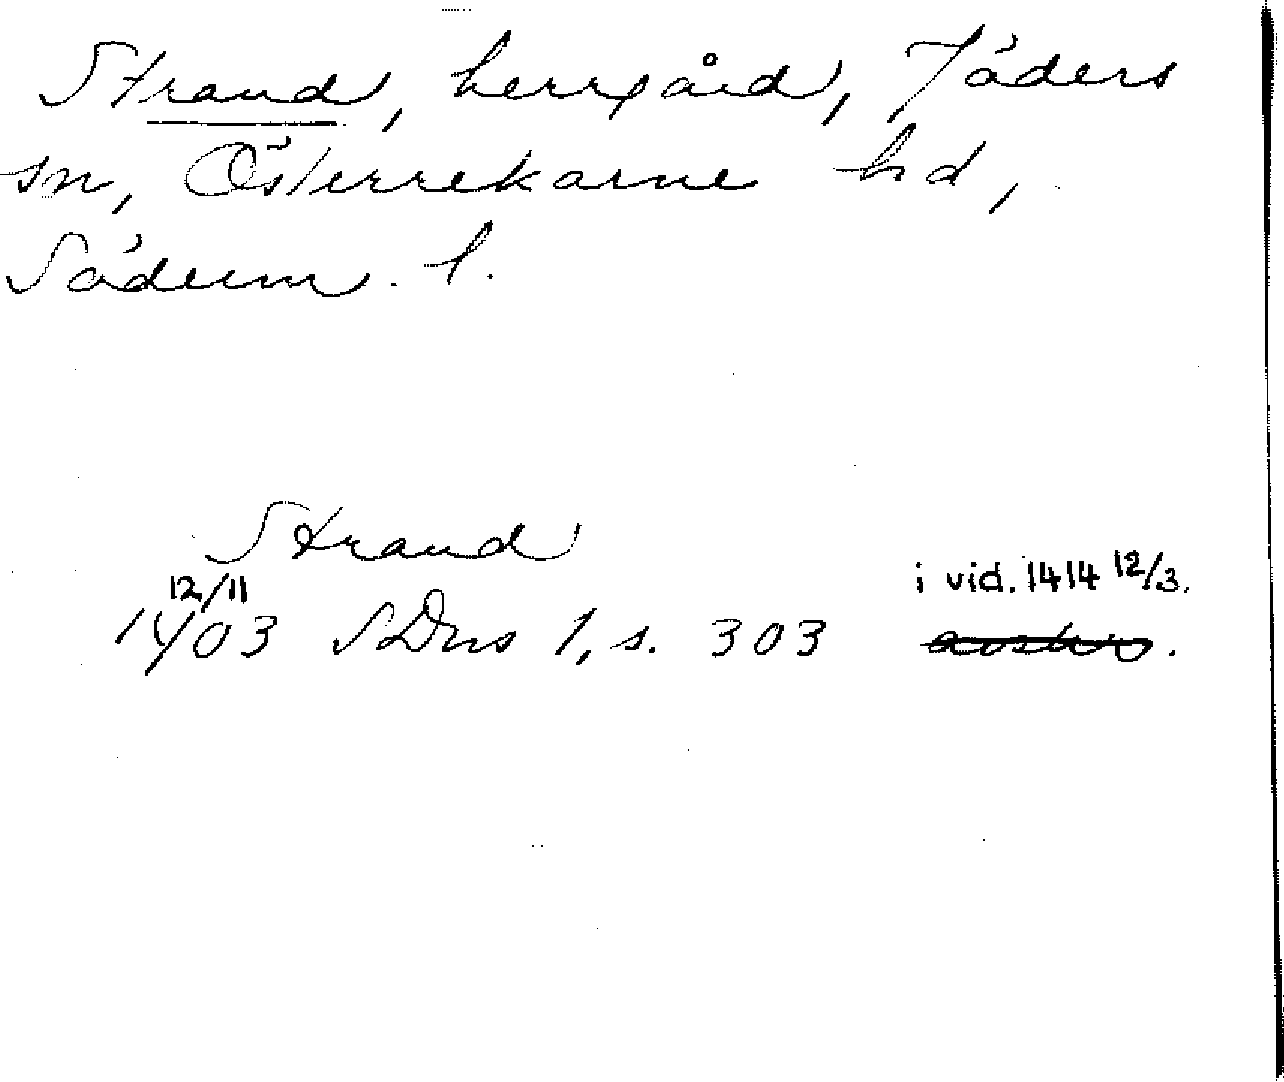 Strand, herrgård, Jäders
sn, Österrekarne hd,
Söderm. l.
Strand
12/11 i vid. 1414 12/3.
1403 SDns 1, s. 303